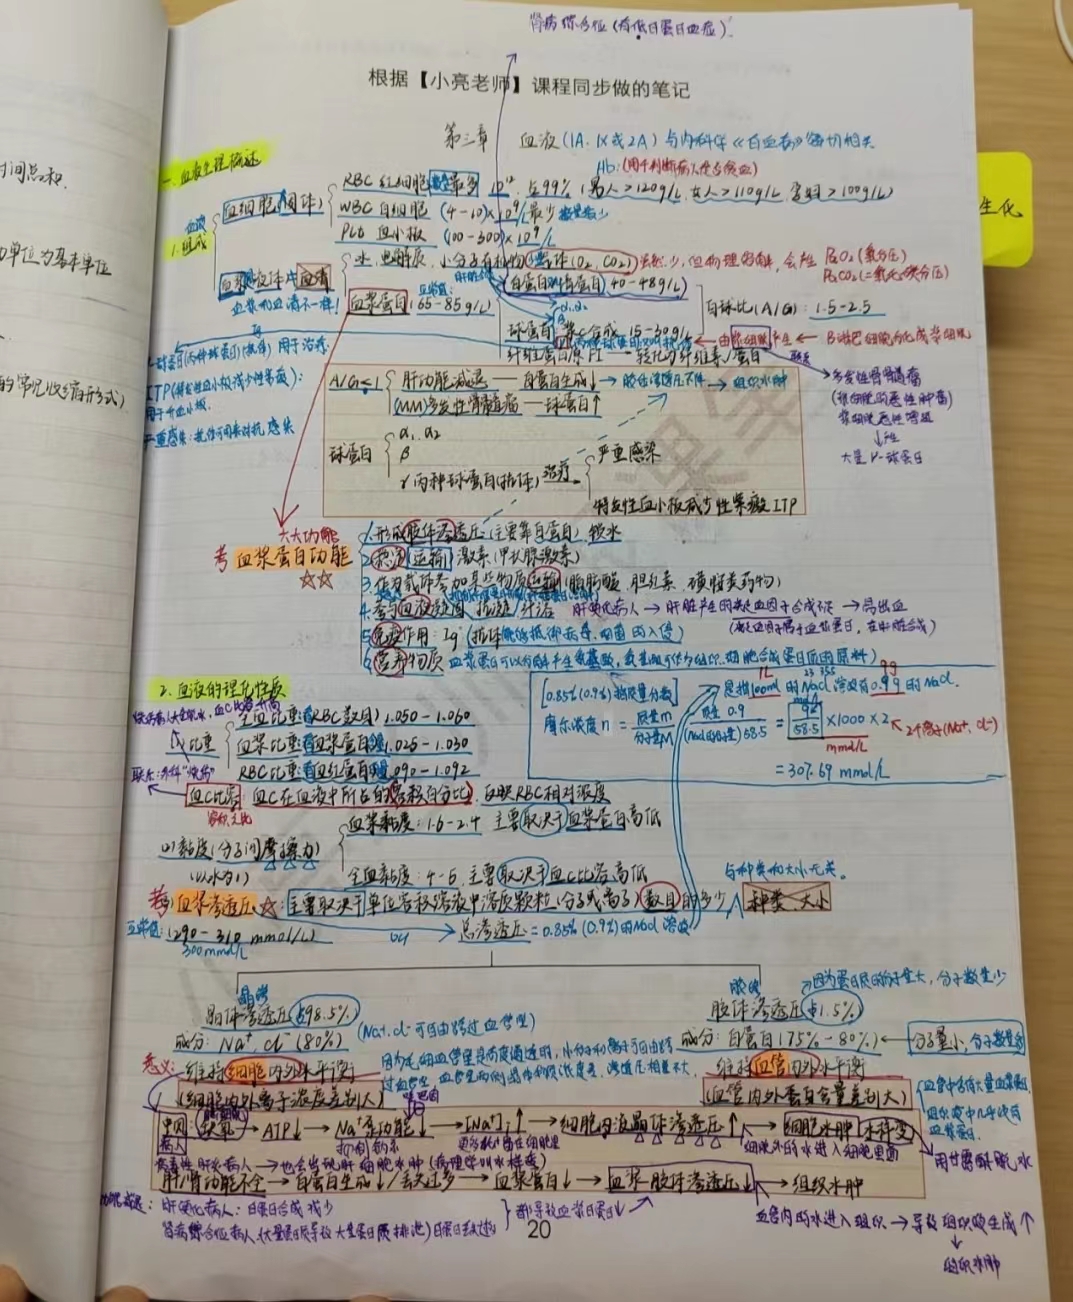 肾病综合征(有低白蛋白血症)
根据【小亮老师】课程同步做的笔记
第三章 血液(1A.1X或2A)与内科学《白血病》密切相关
一.血液生理概述
Hb:(用于判断病人是否贫血)
时间总和.
RBC 红细胞 数量最多 10¹² 占99% (男人>120g/L 女人>110g/L 孕妇>100g/L)
血细胞(固体)
WBC 白细胞 (4-10)×10⁹/L最少
生化
血液
1.组成
PLt 血小板 (100-300)×10⁹/L
单位为基本单位
水.电解质.小分子有机物 气体(O₂,CO₂) 虽然少,但物理溶解,会产生 PO₂(氧分压)
PCO₂(二氧化碳分压)
血浆 液体 ≠ 血清
白蛋白 40-48g/L
血浆和血清不一样!
正常值:
血浆蛋白(65-85g/L)
α₁.α₂
β
白球比(A/G):1.5-2.5
球蛋白 15-30g/L
由浆细胞产生 ← B淋巴细胞内化成浆细胞
γ球蛋白(丙种球蛋白)(抗体)用于治疗
多发性骨髓瘤
ITP(特发性血小板减少性紫癜):
用于升血小板.
的常见收缩形式)
(浆细胞的恶性肿瘤)
浆细胞恶性增殖
↓产生
大量γ-球蛋白
A/G<1
肝功能减退 — 白蛋白生成↓ → 胶体渗透压下降 → 组织水肿
(MM)多发性骨髓瘤 — 球蛋白↑
球蛋白
α₁.α₂
β
γ 丙种球蛋白(抗体) 治疗
严重感染
特发性血小板减少性紫癜 ITP
六大功能
考 血浆蛋白功能 ☆☆
1.形成胶体渗透压(主要靠白蛋白) 锁水
2.稳定 运输 激素(甲状腺激素)
3.作为载体参加某些物质运输(脂肪酸.胆红素.磺胺类药物)
4.参与血液凝固.抗凝/纤溶 肝硬化病人 → 肝脏产生的凝血因子合成不足 → 易出血
(凝血因子属于血浆蛋白,在肝脏合成)
5.免疫作用:Ig(抗体能够抵御病毒.细菌的入侵)
6.营养物质 血浆蛋白可以分解产生氨基酸
2.血液的理化性质
[0.85%(0.9%)指质量分数]
是指100ml的NaCl溶液有0.9g的NaCl.
1L
9g
全血比重(看RBC数目)1.050-1.060
比重
血浆比重(看血浆蛋白)1.025-1.030
RBC比重(看血红蛋白)1.090-1.092
摩尔浓度n=质量m/分子量M
质量 0.9/(NaCl的分子量)58.5 = 9/58.5 ×1000×2 ← 2个离子(Na⁺.Cl⁻)
mmol/L
=307.69 mmol/L
血C比容:血C在血液中所占的容积百分比) 反映RBC相对浓度
容积之比
黏度(分子间摩擦力)
(以水为1)
血浆黏度:1.6-2.4 主要取决于血浆蛋白高低
全血黏度:4-5 主要取决于血C比容高低
与种类和大小无关.
考 血浆渗透压 ☆:主要取决于单位容积溶液中溶质颗粒(分子或离子)数目的多少 种类、大小
正常值:(290-310 mmol/L)
300mmol/L
总渗透压=0.85%(0.9%)的NaCl溶液
晶体渗透压(98.5%)
成分:Na⁺.Cl⁻(80%)
(Na⁺.Cl⁻可自由跨过血管壁)
胶体渗透压(1.5%)
因为蛋白质的分子量大,分子数量少
成分:白蛋白(75%-80%) ← 分子量小,分子数量多
意义:维持细胞内外水平衡
(细胞内外离子浓度差别大)
维持血管内外水平衡
(血管内外蛋白含量差别大)
血管中含有大量血浆蛋白
组织液中几乎没有
血浆蛋白.
缺氧 → ATP↓ → Na⁺泵功能↓ → [Na⁺]i↑ → 细胞内液晶体渗透压↑ → 细胞水肿
细胞外的水进入细胞里面
用甘露醇脱水
病毒性肝炎病人 → 也会出现肝细胞水肿(病理学叫水样变)
肝/肾功能不全 → 白蛋白生成↓/丢失过多 → 血浆蛋白↓ → 血浆胶体渗透压↓ → 组织水肿
功能减退:肝硬化病人:白蛋白合成减少
都导致血浆白蛋白↓
血管内的水进入组织 → 导致组织液生成↑
↓
组织水肿
20